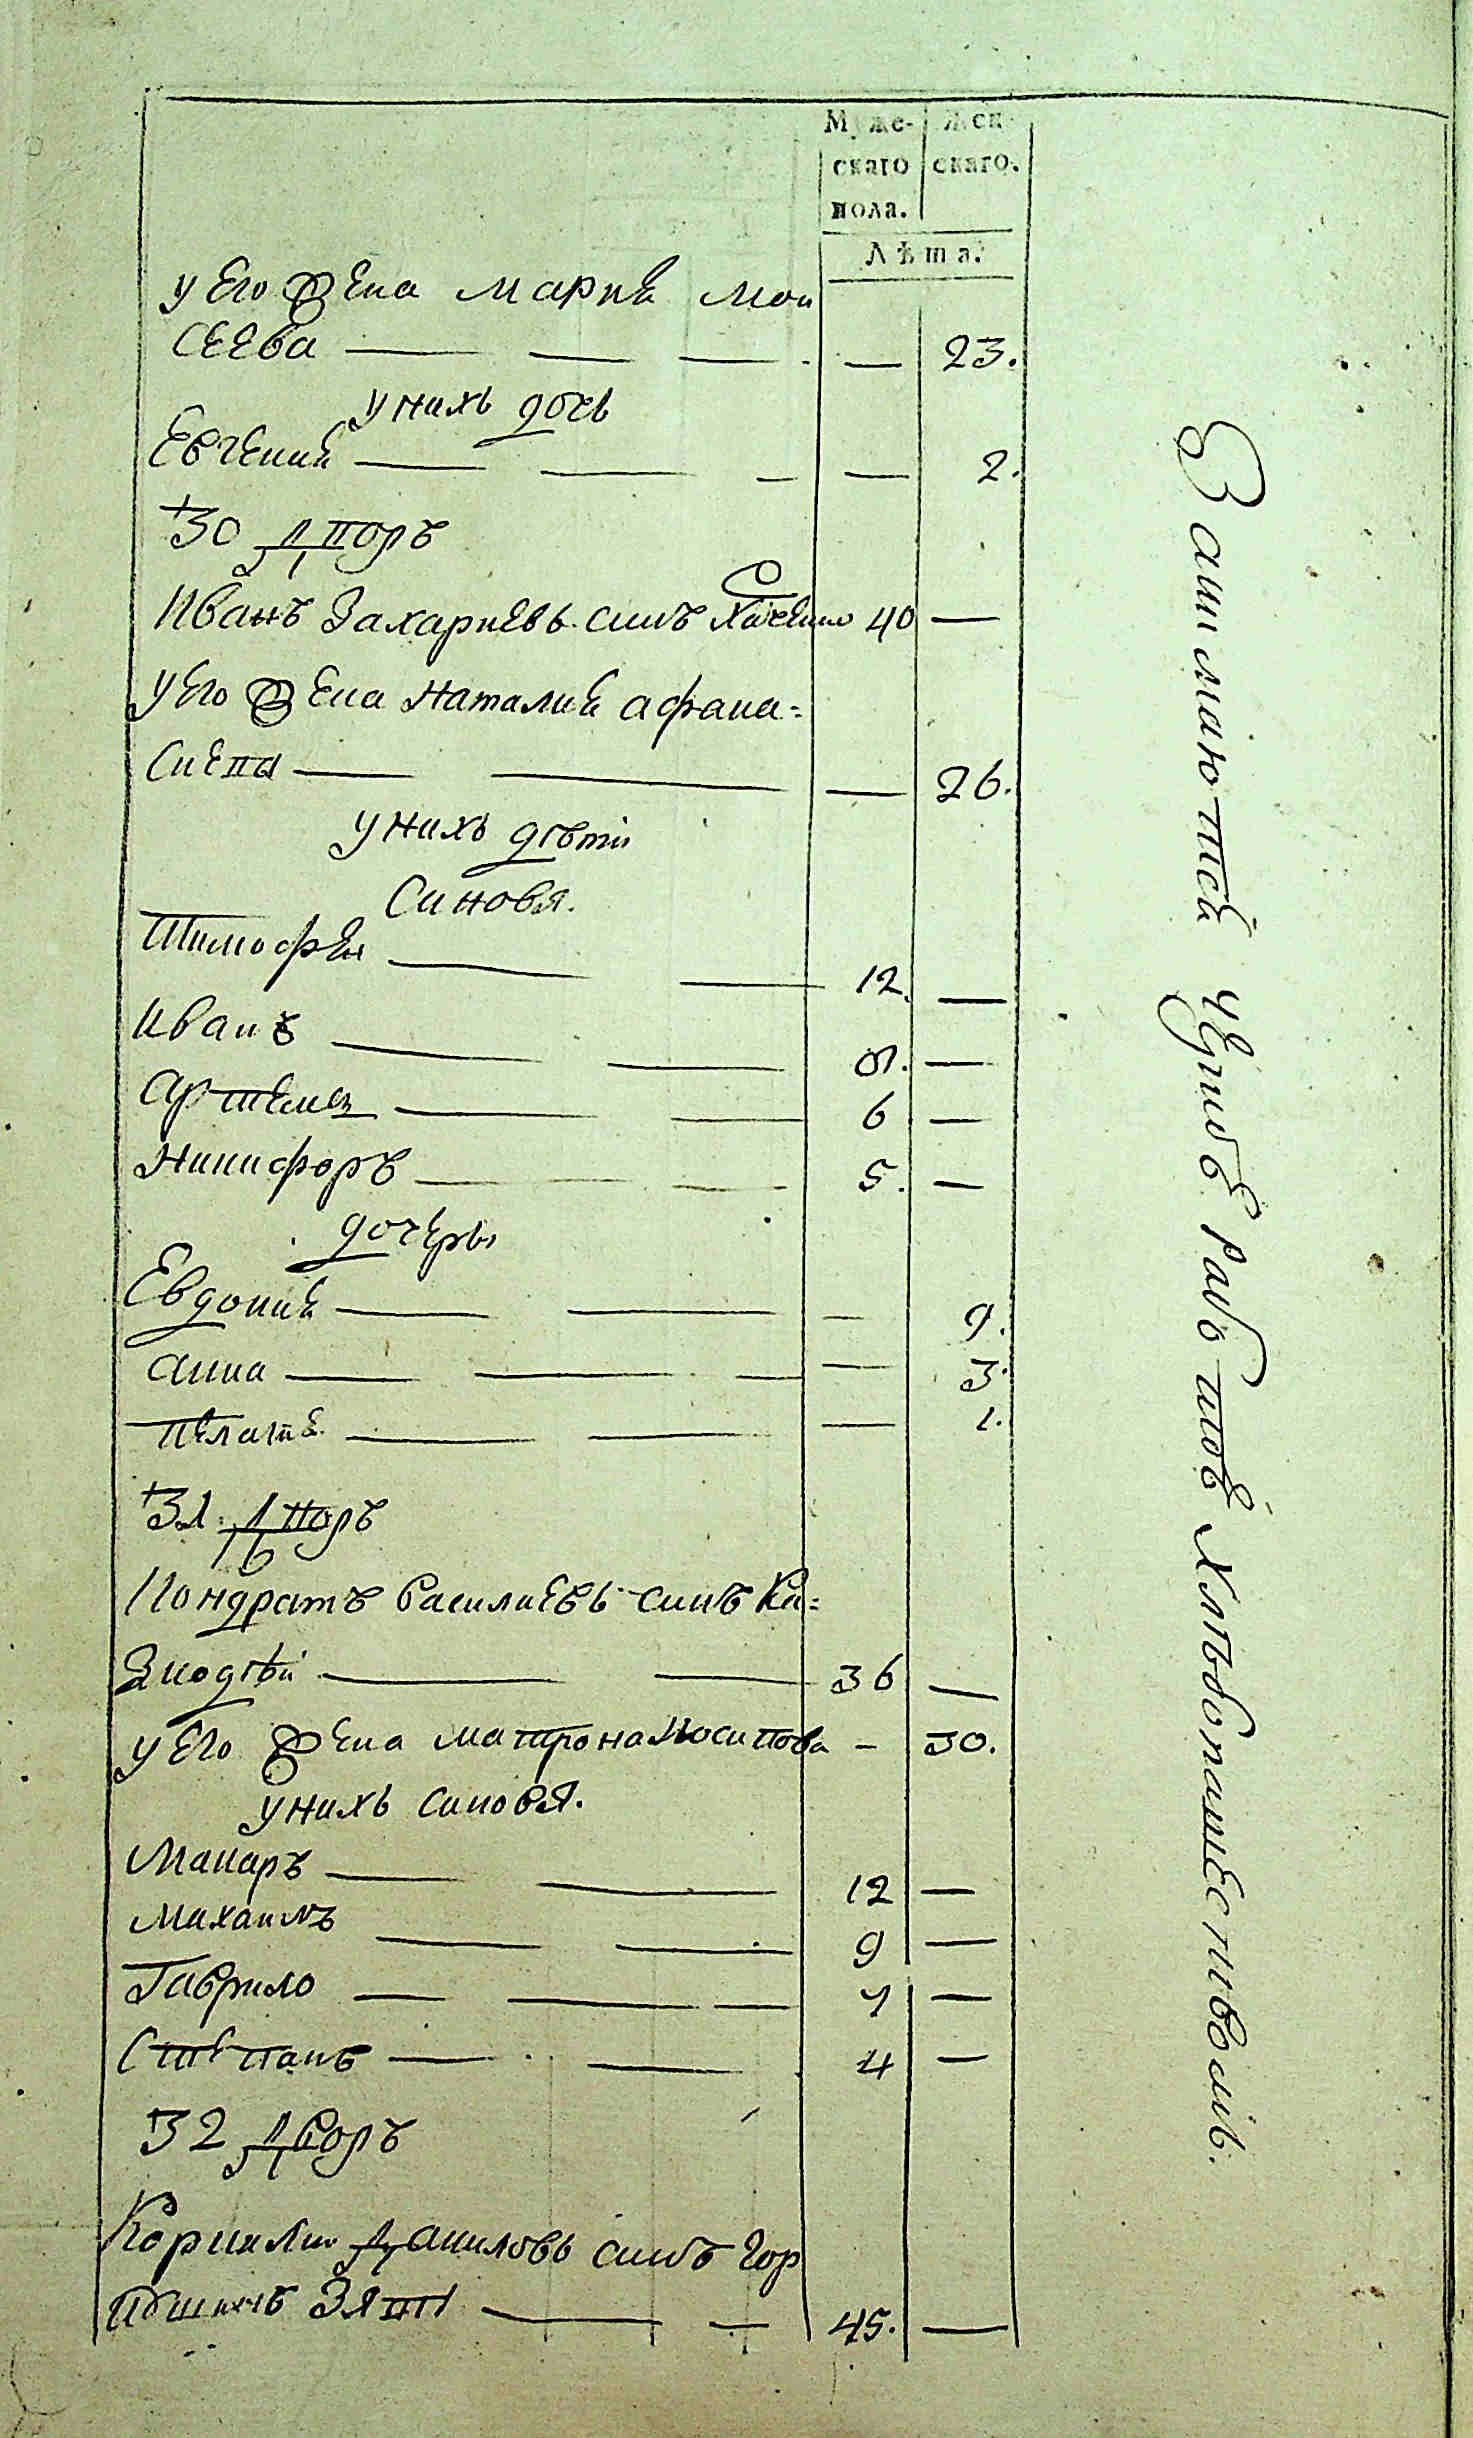 Муже- Жен-
скаго скаго.
пола.
Лѣта.
У Его Жена Мария Мои
сеева — — 23.
У нихъ дочь
Евгения — — 2.
30 Дворъ
Иванъ Захариевъ синъ 40 —
У Его Жена Наталия Афана=
сиева — — 26.
У нихъ дѣти
Синовя.
Тимофеи — 12. —
Иванъ — —
Артемеи — 6 —
Никифоръ — 5. —
дочеры
Евдокия — — 9.
Анна — — 3.
Пелагия — — 1.
31 Дворъ
Кондратъ Василиевъ синъ Ка=
знодѣй — 36 —
У Его Жена Матрона Иосипова — 30.
У нихъ Синовя.
Макаръ — 12 —
Михаилъ — 9 —
Гаврило — 7 —
Степанъ — 4 —
32 Дворъ
Корнилии Даниловъ синъ Гор
зять — 45. —
Занимаются Хлѣбопашествомъ.